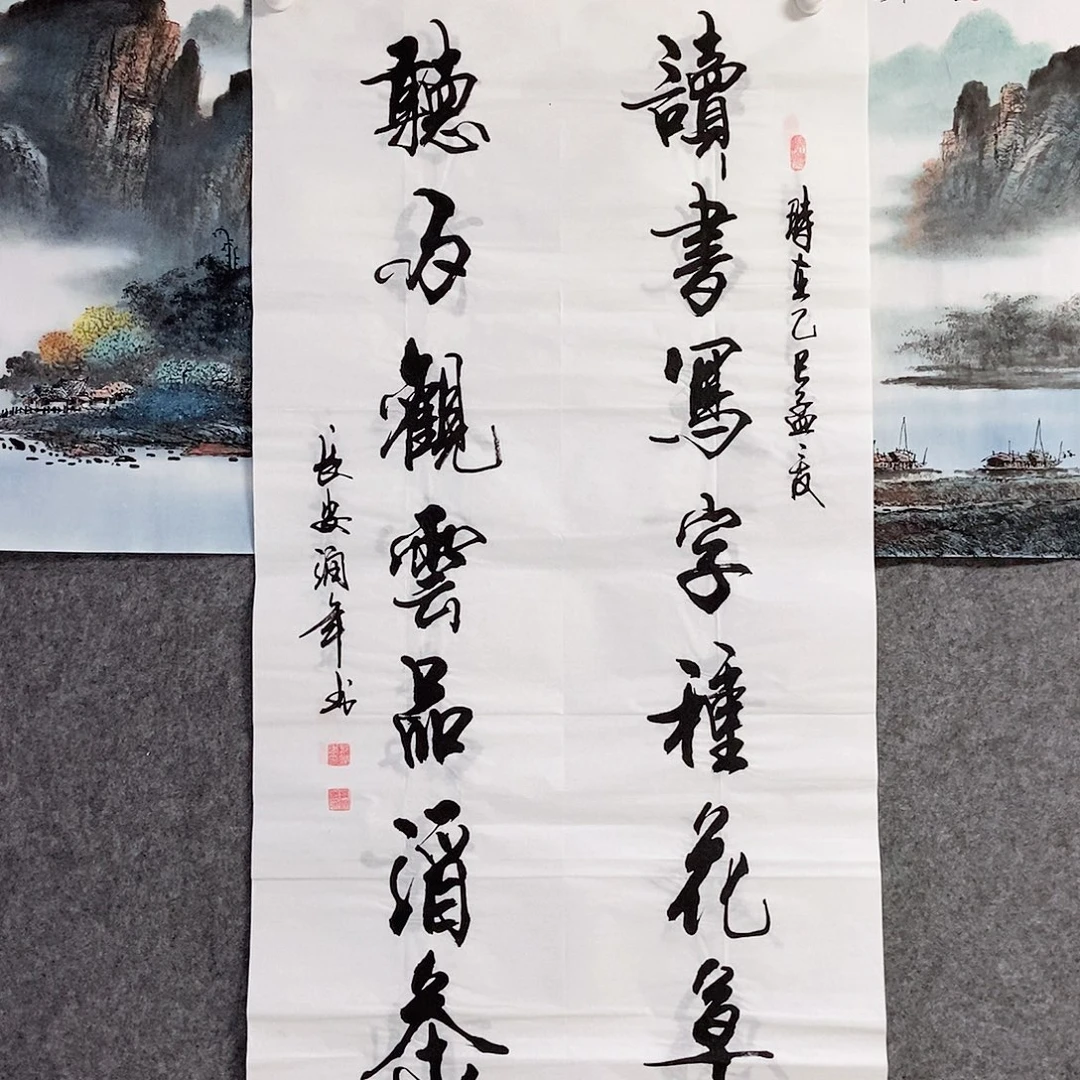 時在乙巳孟夏
讀書寫字種花草
聽雨觀雲品酒茶
長安潤年书